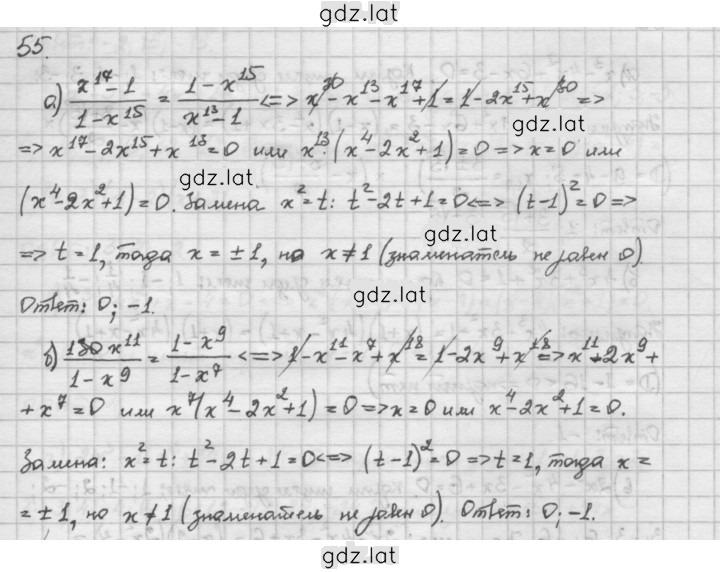 gdz.lat
55.
а) (x^17-1)/(1-x^15) = (1-x^15)/(x^13-1) <=> x^30-x^13-x^17+1=1-2x^15+x^30 =>
gdz.lat
=> x^17-2x^15+x^13=0 или x^13·(x^4-2x^2+1)=0 => x=0 или
gdz.lat
(x^4-2x^2+1)=0. Замена x^2=t: t^2-2t+1=0 <=> (t-1)^2=0 =>
gdz.lat
=> t=1, тогда x=±1, но x≠1 (знаменатель не равен 0).
gdz.lat
Ответ: 0; -1.
б) x^11/(1-x^9) = (1-x^9)/(1-x^7) <=> 1-x^11-x^7+x^18=1-2x^9+x^18 => x^11-2x^9+
+x^7=0 или x^7(x^4-2x^2+1)=0 => x=0 или x^4-2x^2+1=0.
Замена: x^2=t: t^2-2t+1=0 <=> (t-1)^2=0 => t=1, тогда x=
=±1, но x≠1 (знаменатель не равен 0). Ответ: 0; -1.
gdz.lat